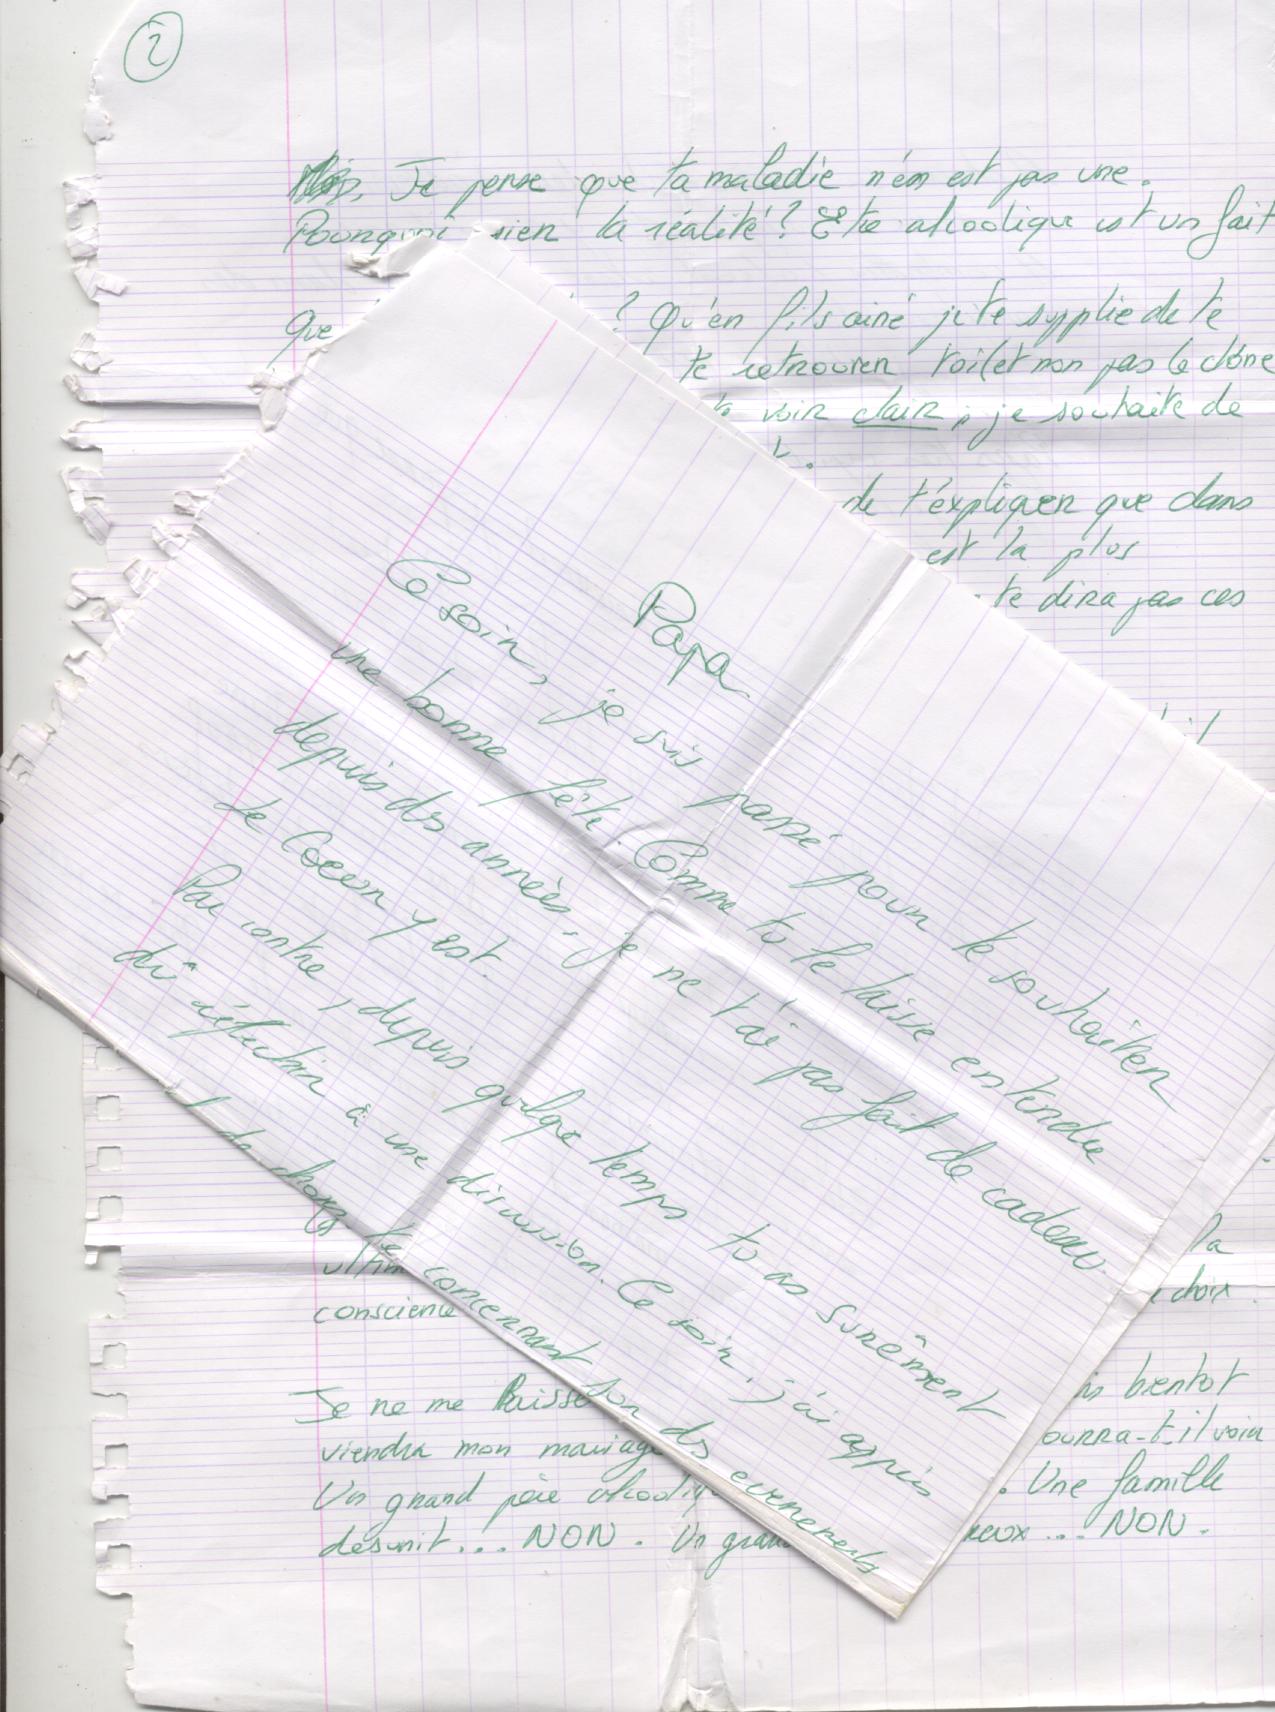 Papa
Ce soir, je suis passé pour te souhaiter
une bonne fête. Comme tu le laisse entendre
depuis des années, je ne t'ai pas fait de cadeau.
Le Coeur y est.
Par contre, depuis quelque temps tu as surêment
dû réfléchir à une discussion. Ce soir, j'ai appris
de choses te concernant
des evenements
2
Je pense que ta maladie n'en est pas une.
Pourquoi nier la réalité? Etre alcoolique est un fait
Que ? Qu'en fils ainé je te supplie de te
te retrouver toi(et non pas le clône
voir clair, je souhaite de
de t'expliquer que dans
est la plus
te dira pas ces
la
choix.
conscience
Je ne me bientot
viendra mon mariage ourra-t-il voir
Un grand père alcooliq . Une famille
désunit... NON. Un gran reux... NON.